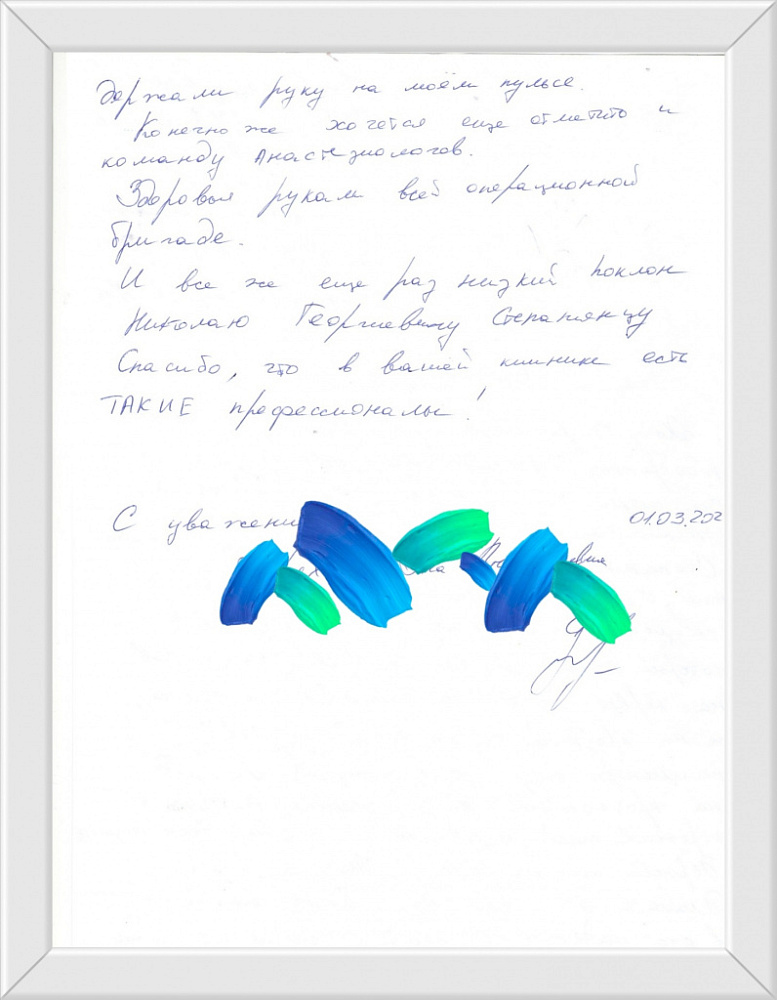 держали руку на моём пульсе.
Конечно же хочется еще отметить и
команду Анастезиологов.
Здоровья рукам всей операционной
бригаде.
И все же еще раз низкий поклон
Николаю Георгиевичу Степанянцу
Спасибо, что в вашей клинике есть
ТАКИЕ профессионалы!
С уважени
01.03.202